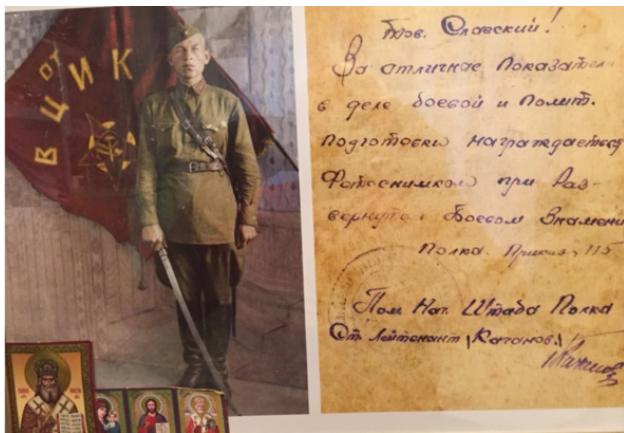 от
ВЦИК
Тов. Славский!
За отличные показатели
в деле боевой и Полит.
подготовки награждается
Фотоснимком при Раз-
вернутом Боевом Знамени
Полка. Приказ 115
Пом Нач. Штаба Полка
Ст. Лейтенант (Каганов)